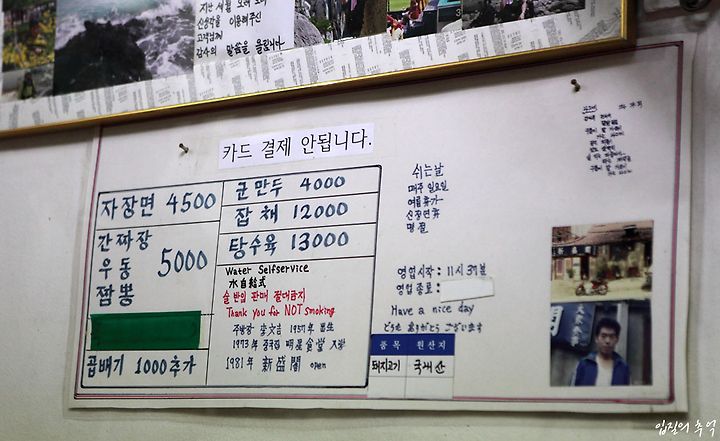 지난 세월
신생각을 이용해주신
고객님께
감사의 말씀을 올립니다
카드 결제 안됩니다.
자장면 4500
간짜장
우동 5000
짬뽕
곱배기 1000추가
군만두 4000
잡채 12000
탕수육 13000
Water Selfservice
水自給式
술 반입 판매 절대금지
Thank you for NOT smoking
주방장 李文吉 1957년 出生
1973年 중국집 明星食堂 入社
1981年 新盛閣 open
쉬는날
매주 일요일
여름휴가
신정연휴
명절
영업시작 : 11시 37분
영업종료 :
Have a nice day
どうも ありがとう ございます
품목 원산지
돼지고기 국내산
입질의 추억